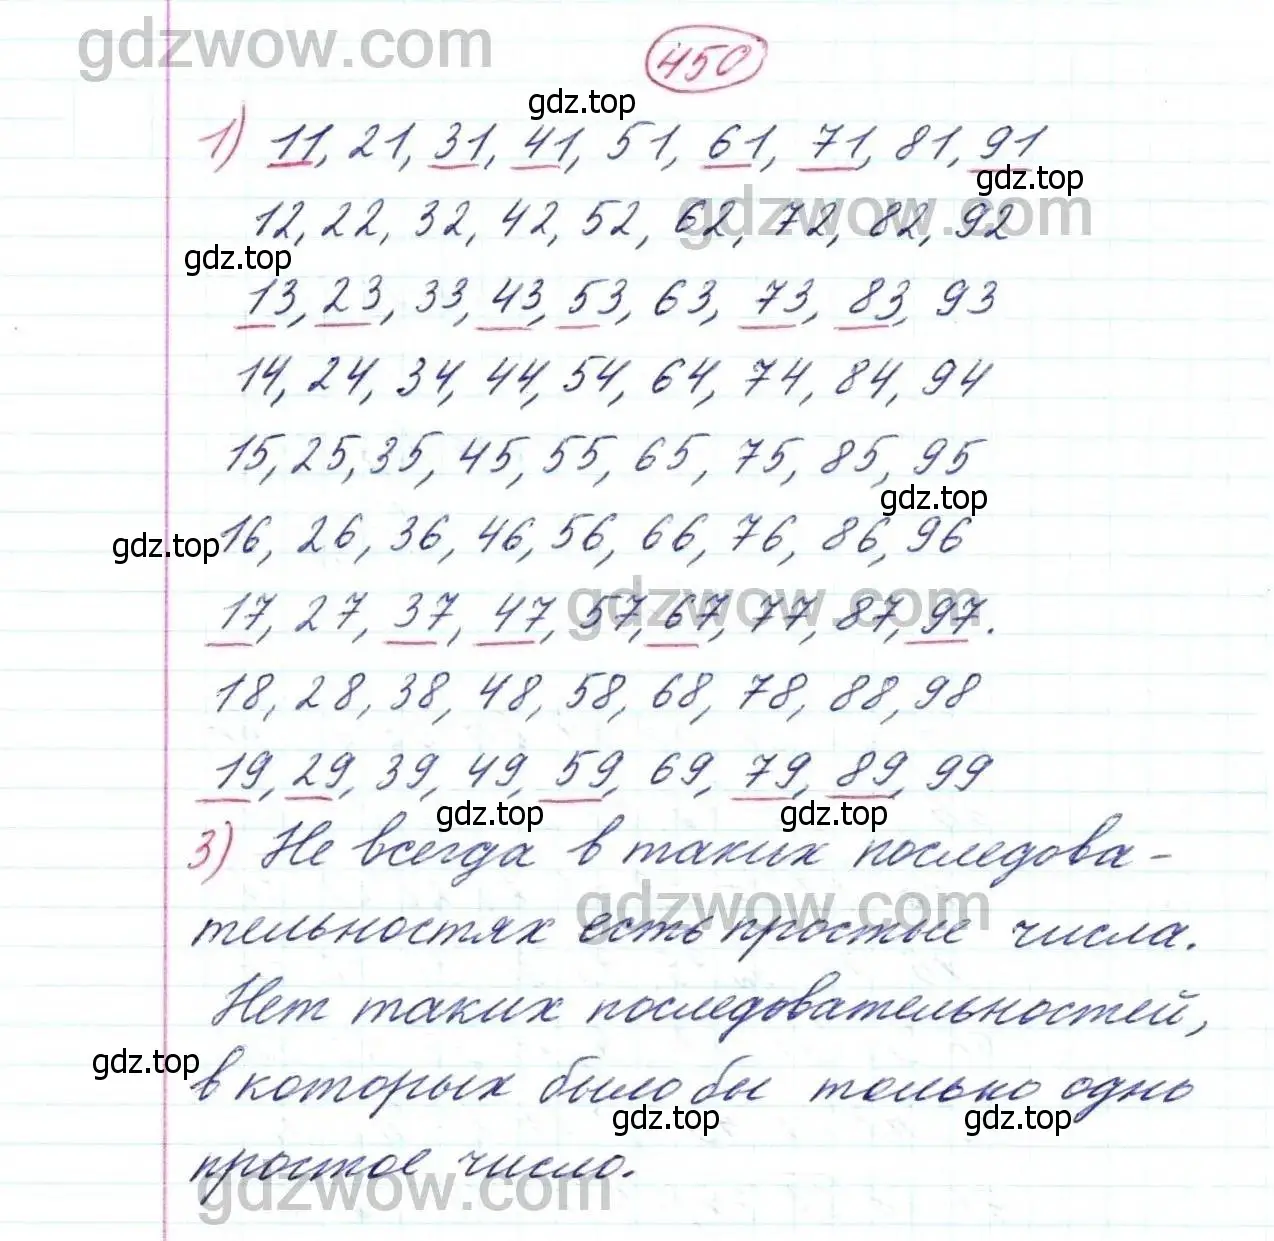 gdzwow.com
450
gdz.top
1) 11, 21, 31, 41, 51, 61, 71, 81, 91
gdz.top
gdzwow.com
12, 22, 32, 42, 52, 62, 72, 82, 92
gdz.top
13, 23, 33, 43, 53, 63, 73, 83, 93
14, 24, 34, 44, 54, 64, 74, 84, 94
15, 25, 35, 45, 55, 65, 75, 85, 95
gdz.top
gdz.top
16, 26, 36, 46, 56, 66, 76, 86, 96
gdzwow.com
17, 27, 37, 47, 57, 67, 77, 87, 97.
18, 28, 38, 48, 58, 68, 78, 88, 98
19, 29, 39, 49, 59, 69, 79, 89, 99
gdz.top
gdz.top
3) Не всегда в таких последова-
gdzwow.com
тельностях есть простые числа.
Нет таких последовательностей,
gdz.top
в которых было бы только одно
gdz.top
gdz.top
простое число.
gdzwow.com